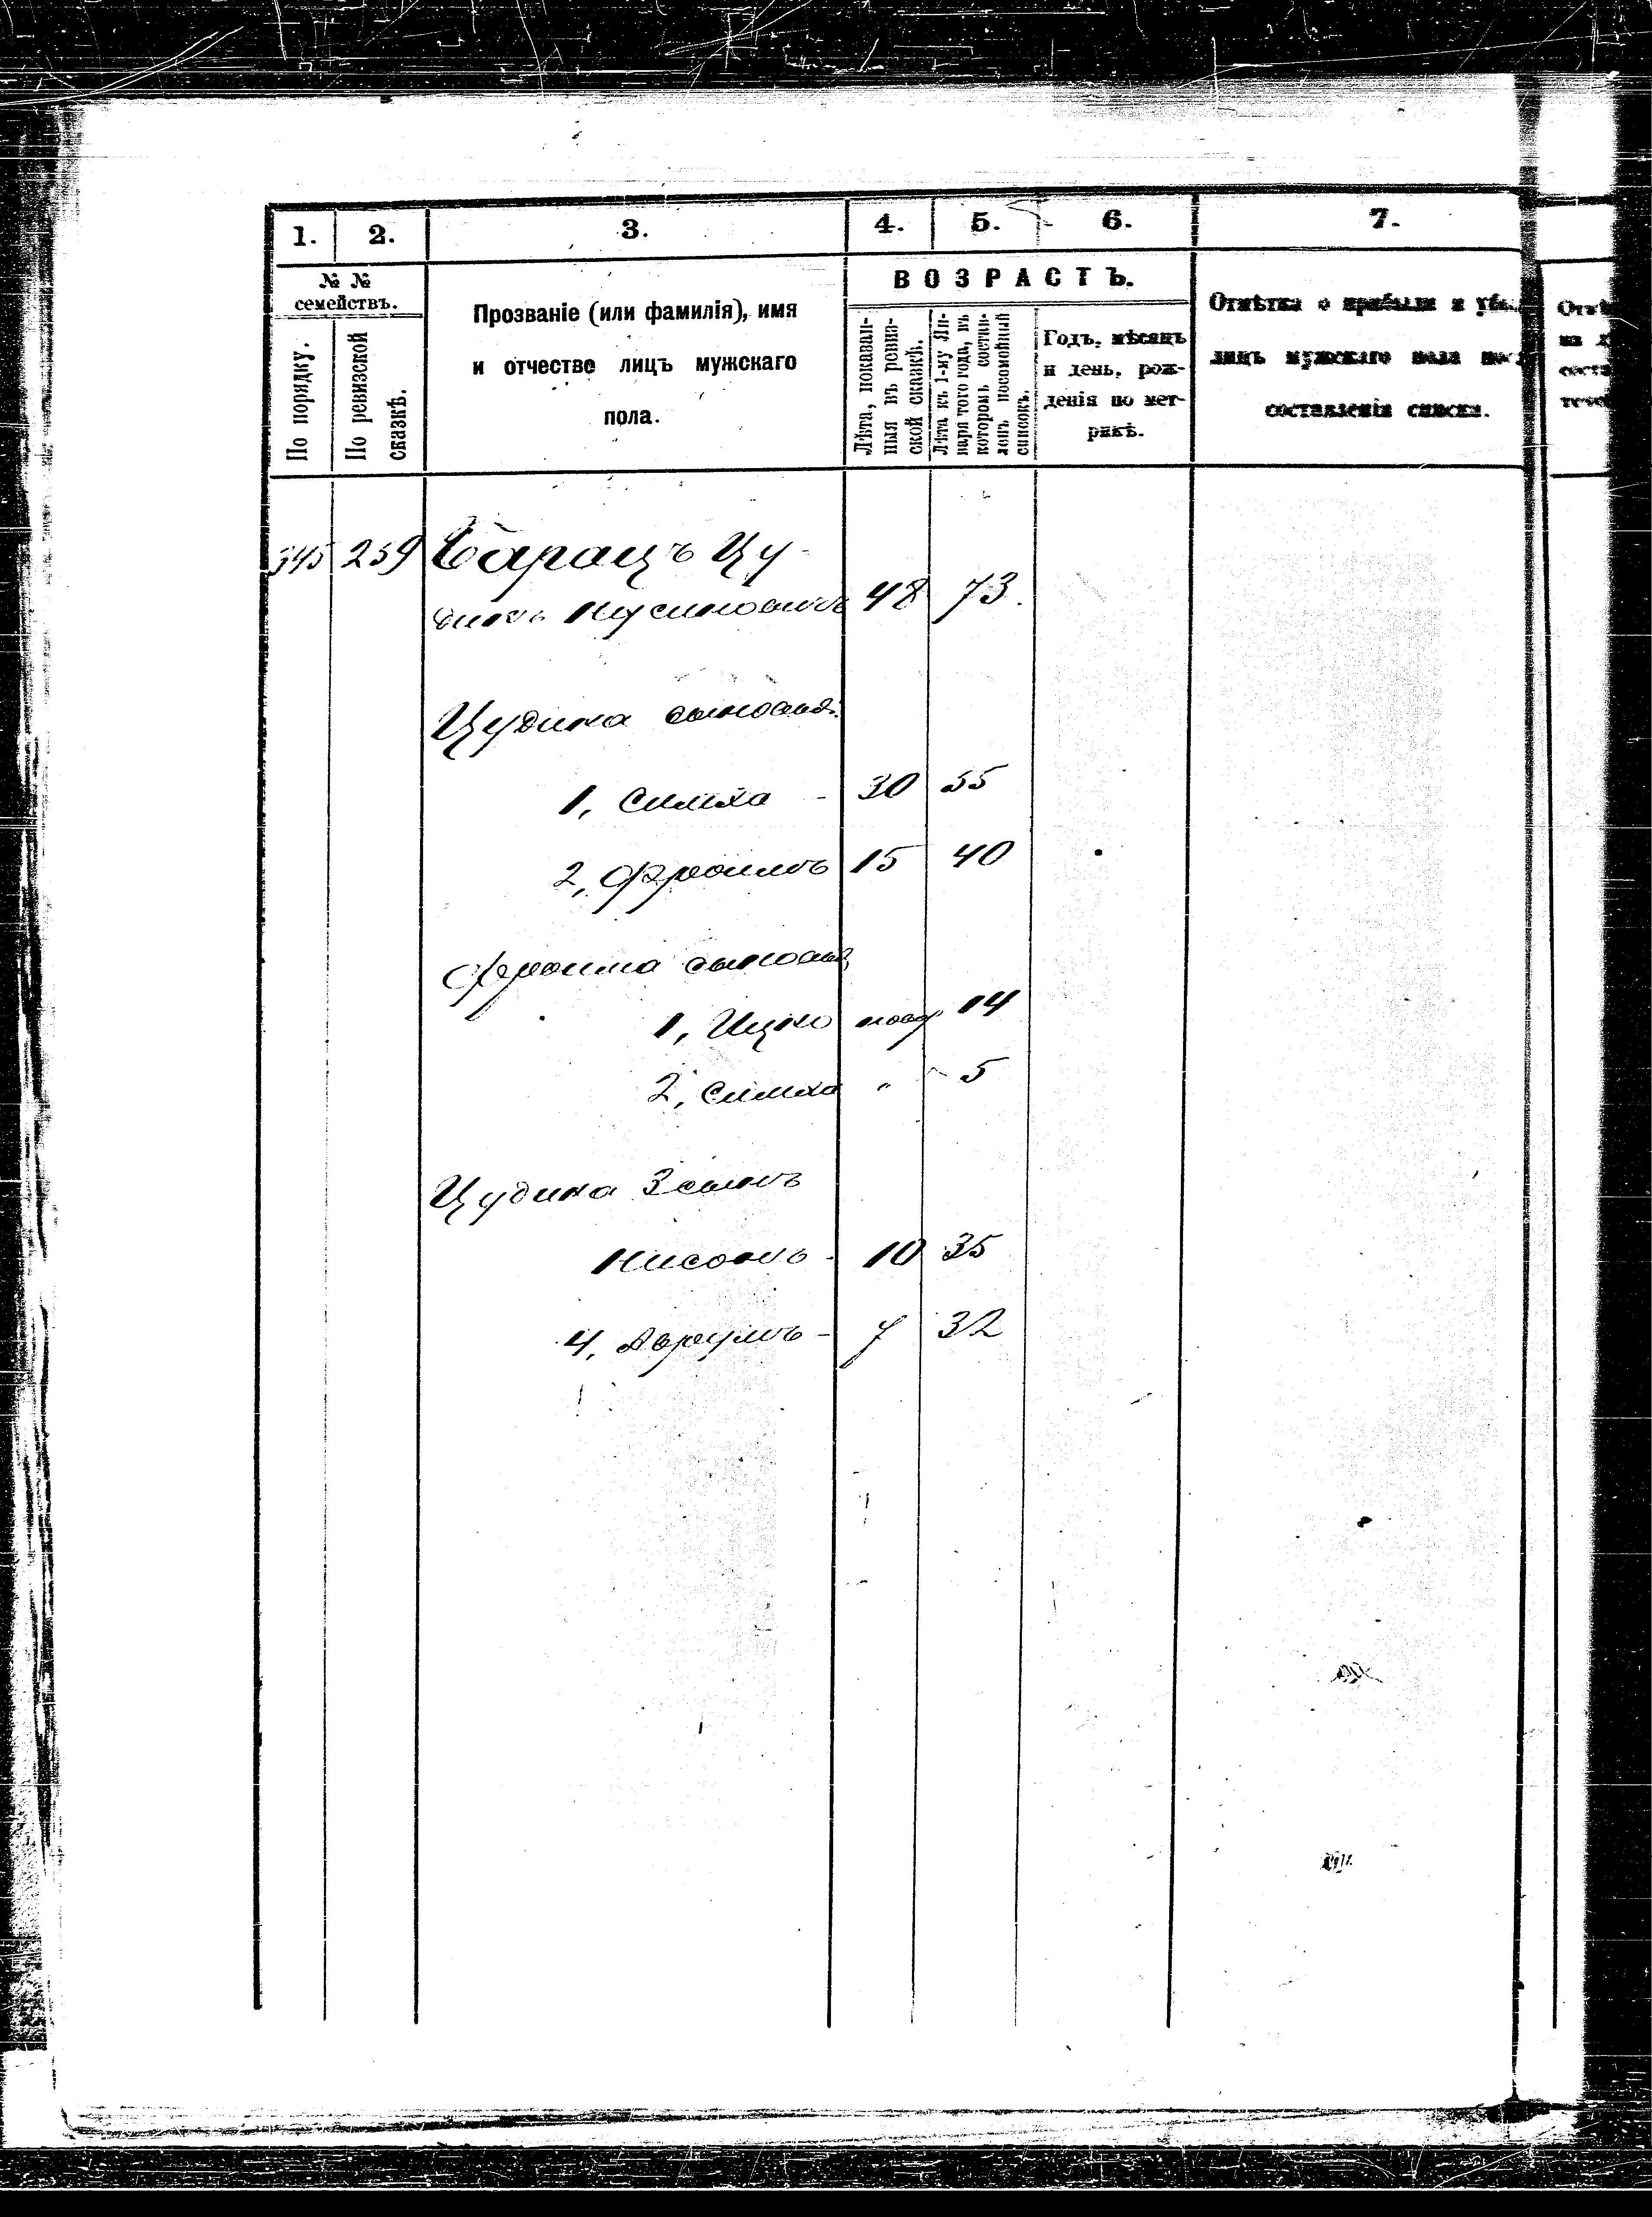 1. 2. 3. 4. 5. 6. 7.
№ №
семействъ.
По порядку.
По ревизской
сказкѣ.
Прозваніе (или фамилія), имя
и отчество лицъ мужскаго
пола.
ВОЗРАСТЪ.
Лѣта, показан-
ныя въ ревиз-
ской сказкѣ.
Лѣта къ 1-му Ян-
варя того года, въ
которомъ состав-
ленъ посемейный
списокъ.
Годъ, мѣсяцъ
и день, рож-
денія по мет-
рикѣ.
Отмѣтка о прибыли и
лицъ мужскаго пола
составленія списка.
345 259 Барацъ Цу-
динъ Нусиновичъ 48 73.
Цудика сыновья:
1, Симха - 30 55
2, Фроимъ 15 40
Фроима сыновья
1, Ицко новор 14
2, Симха " 5
Цудика 3 сынъ
Нисонъ - 10 35
4, Аврумъ - 7 32